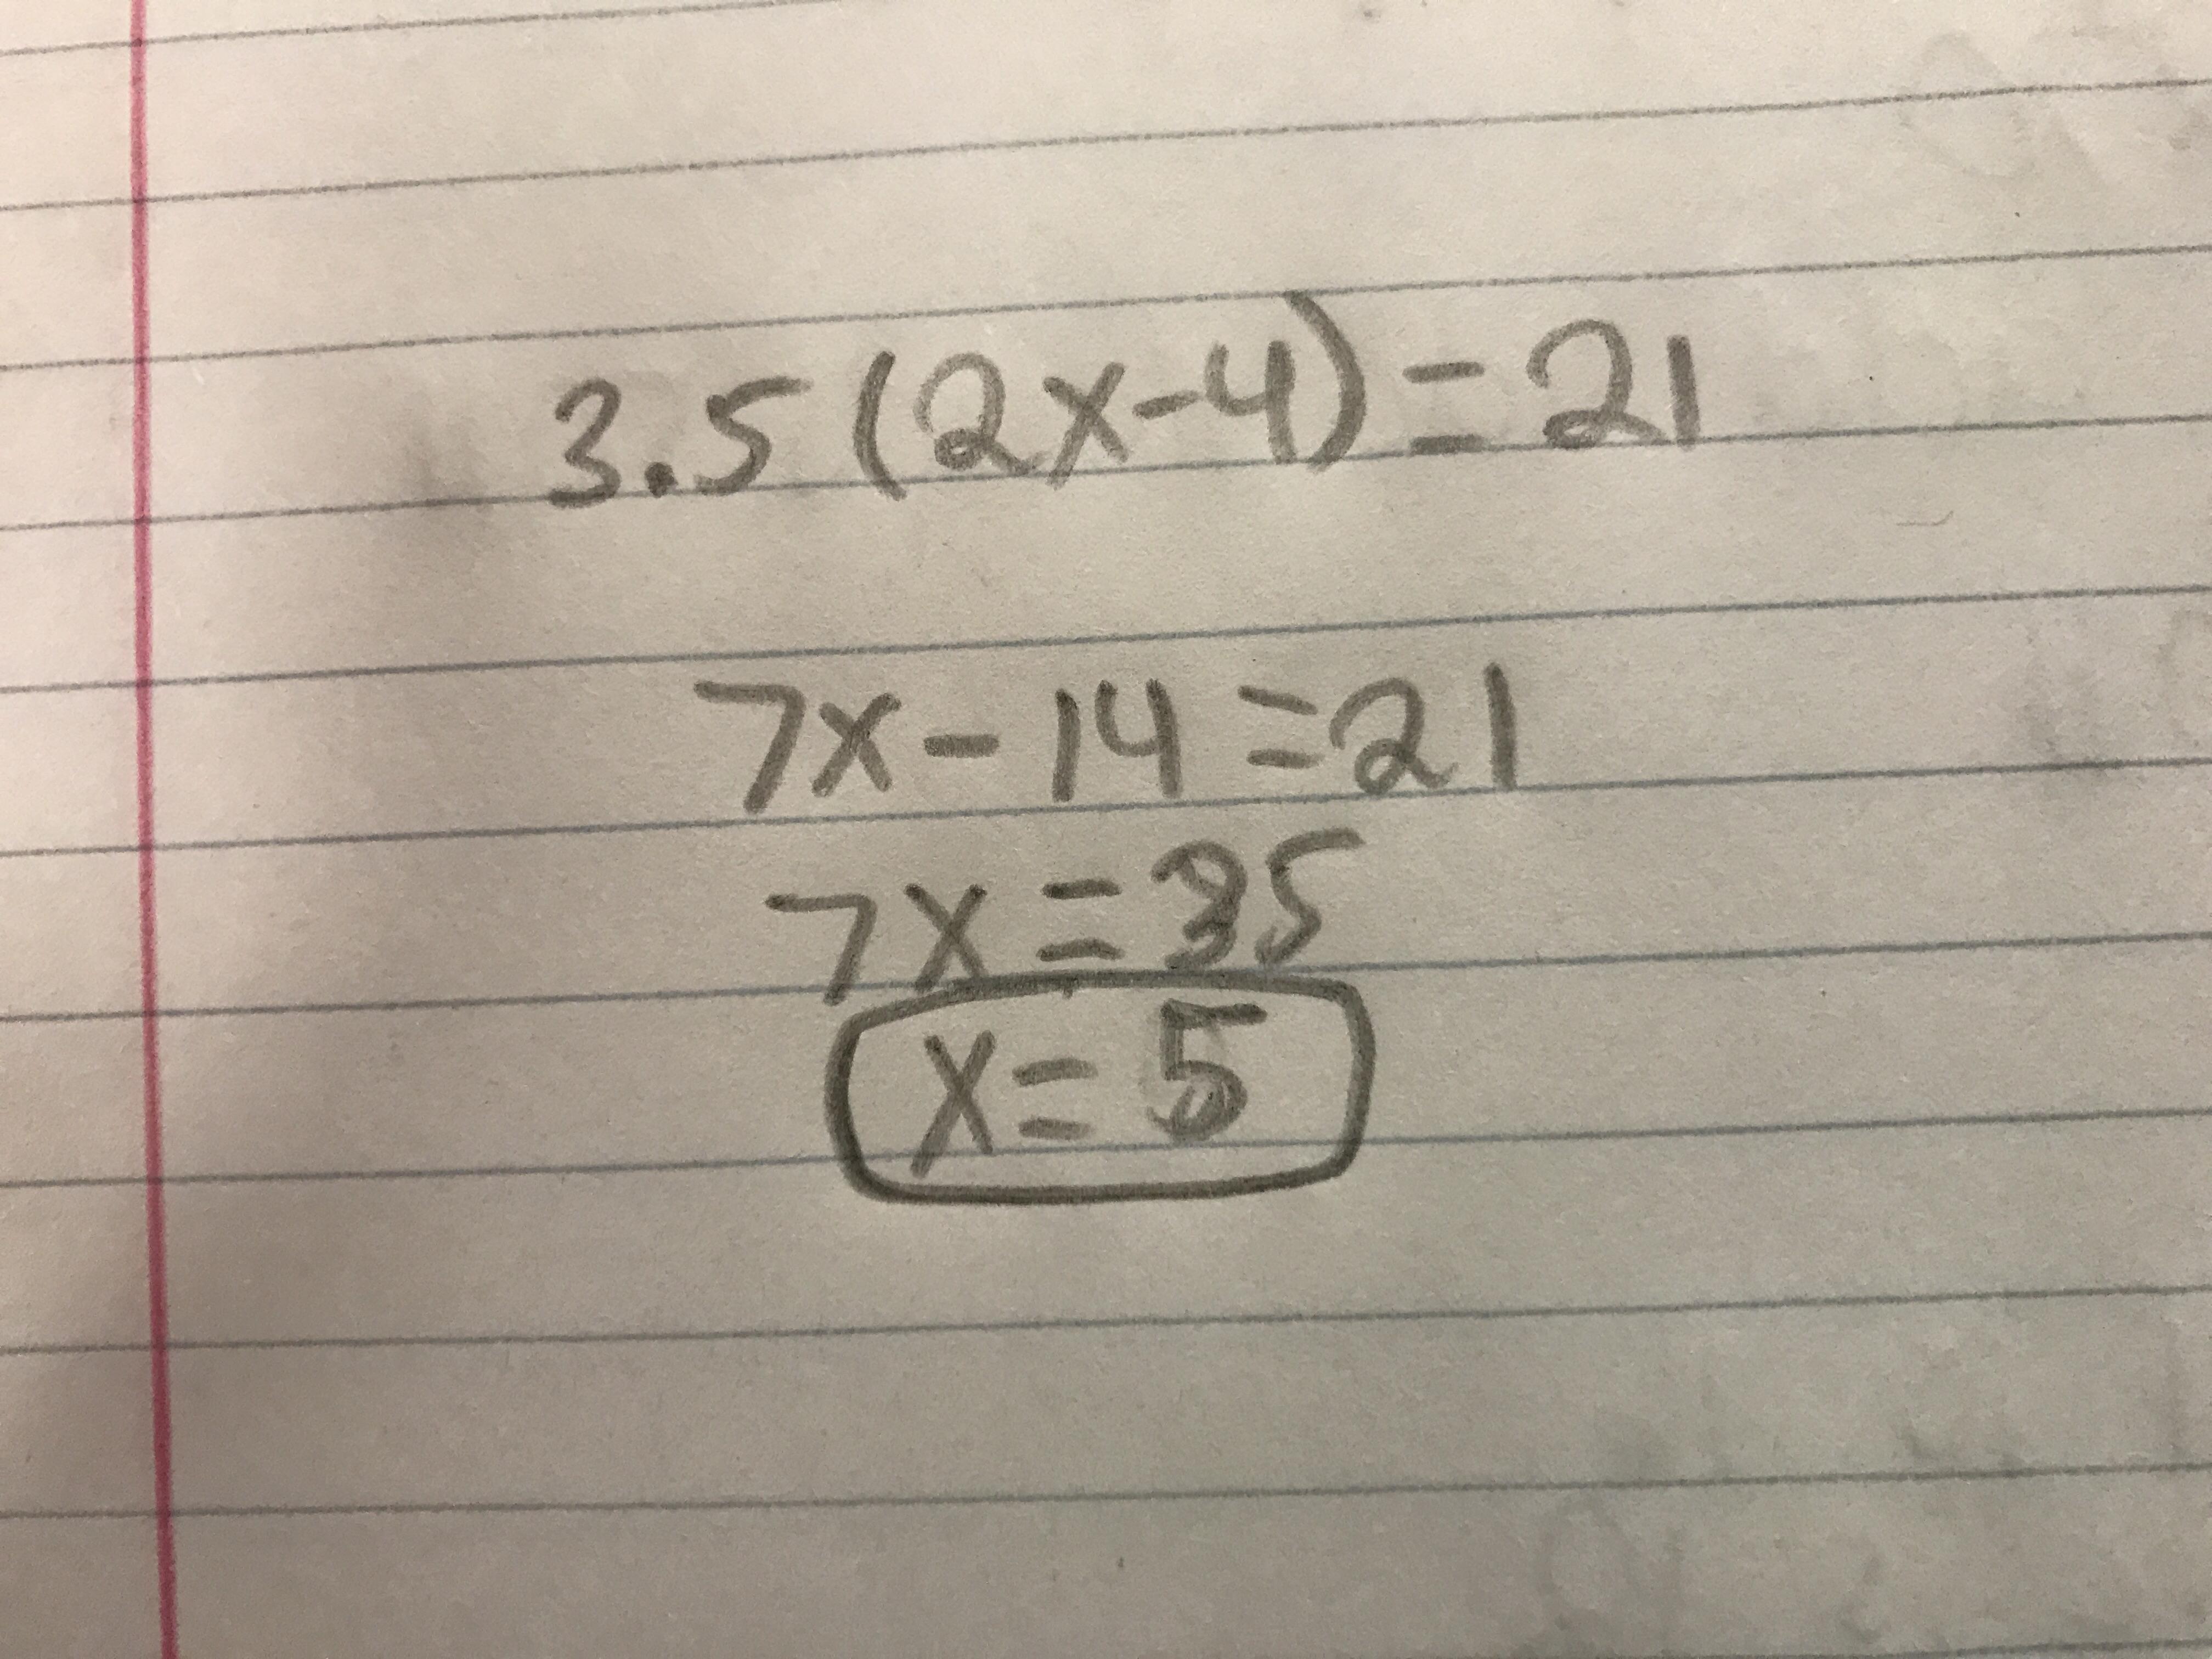 3.5(2x-4)=21
7x-14=21
7x=35
x=5